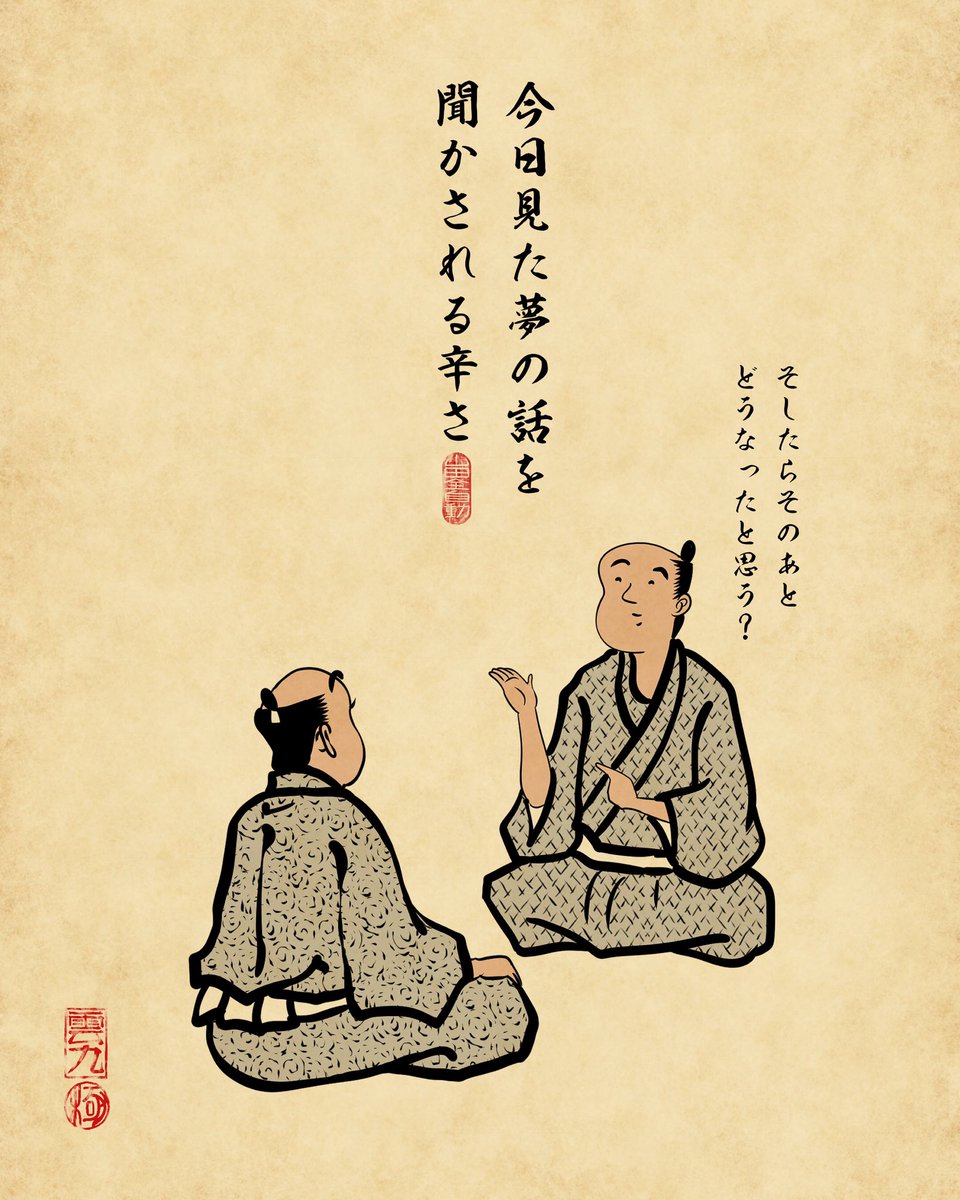 今日見た夢の話を
聞かされる辛さ
そしたらそのあと
どうなったと思う?